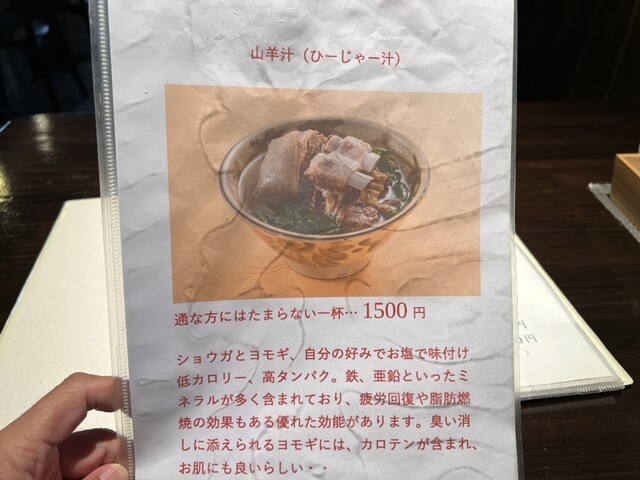 山羊汁（ひーじゃー汁）
通な方にはたまらない一杯… 1500 円
ショウガとヨモギ、自分の好みでお塩で味付け
低カロリー、高タンパク。鉄、亜鉛といったミ
ネラルが多く含まれており、疲労回復や脂肪燃
焼の効果もある優れた効能があります。臭い消
しに添えられるヨモギには、カロテンが含まれ、
お肌にも良いらしい・・
円
0円